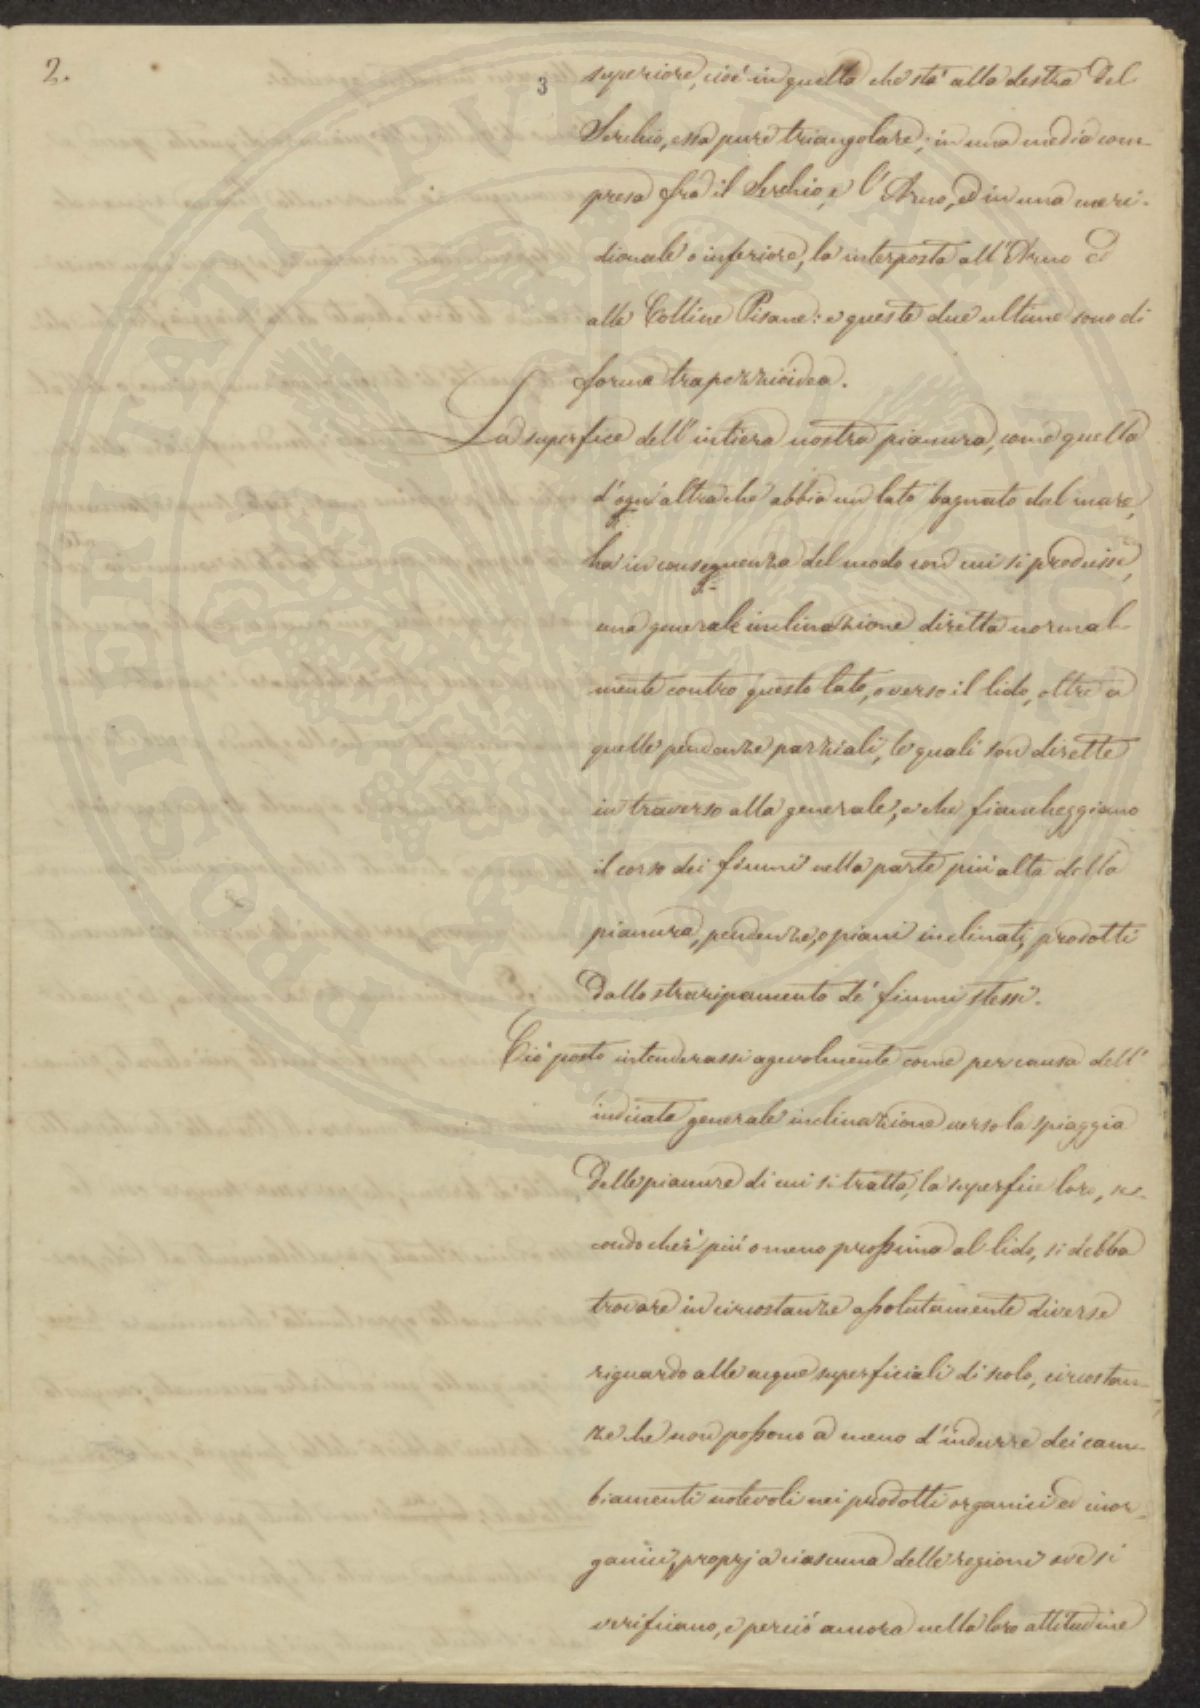 2.
3
superiore, cioè in quella che stà alla destra del
Serchio, essa pure triangolare; in una media com-
presa frà il Serchio, e l'Arno, ed in una meri-
dionale o inferiore, la interposta all'Arno ed
alle Colline Pisane: e queste due ultime sono di
forma trapezzioidea.
La superfice dell'intiera nostra pianura, come quella
d'ogn'altra che abbia un lato bagnato dal mare,
ha in conseguenza del modo con cui si produsse,
una generale inclinazione diretta normal-
mente contro questo lato, o verso il lido, oltre a
quelle pendenze parziali, le quali son dirette
in traverso alla generale, e che fiancheggiano
il corso dei fiumi nella parte più alta della
pianura, pendenze, o piani inclinati, prodotti
dallo straripamento de' fiumi stessi.
Ciò posto intenderassi agevolmente come per causa dell'
indicata generale inclinazione verso la spiaggia
delle pianure di cui si tratta, la superfice loro, se-
condo che è più o meno prossima al lido, si debba
trovare in circostanze assolutamente diverse
riguardo alle acque superficiali di scolo, circostan-
ze che non possono a meno d'indurre dei cam-
biamenti notevoli nei prodotti organici ed inor-
ganici, proprj a ciascuna delle regioni ove si
verificano, e perciò ancora nella loro attitudine
POSTERITATI PVBLICAE